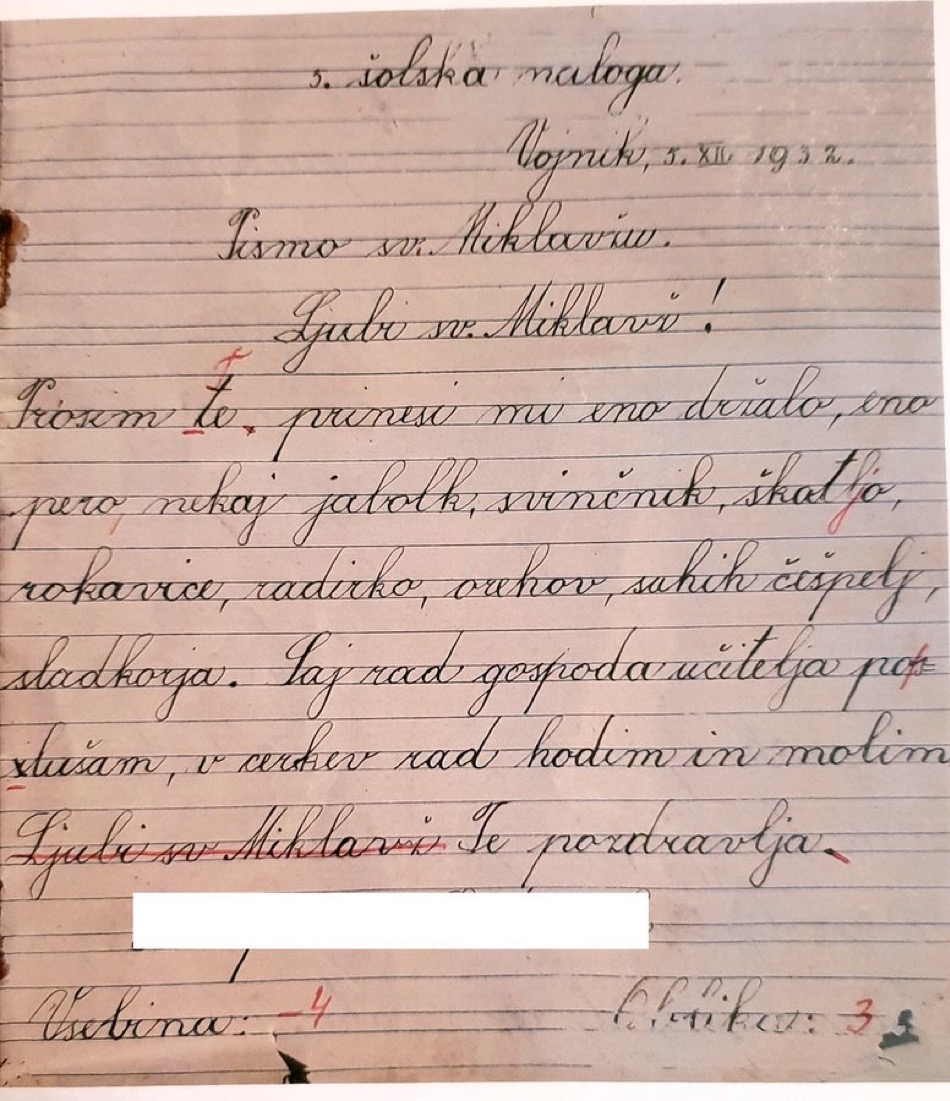 5. šolska naloga.
Vojnik, 5. XII. 1932.
Pismo sv. Miklavžu.
Ljubi sv. Miklavž!
Prosim te, prinesi mi eno držalo, eno
pero, nekaj jabolk, svinčnik, škatljo,
rokavice, radirko, orehov, suhih češpelj,
sladkorja. Saj rad gospoda učitelja po-
slušam, v cerkev rad hodim in molim
Ljubi sv Miklavž Te pozdravlja.
Vsebina: -4
Oblika: 3